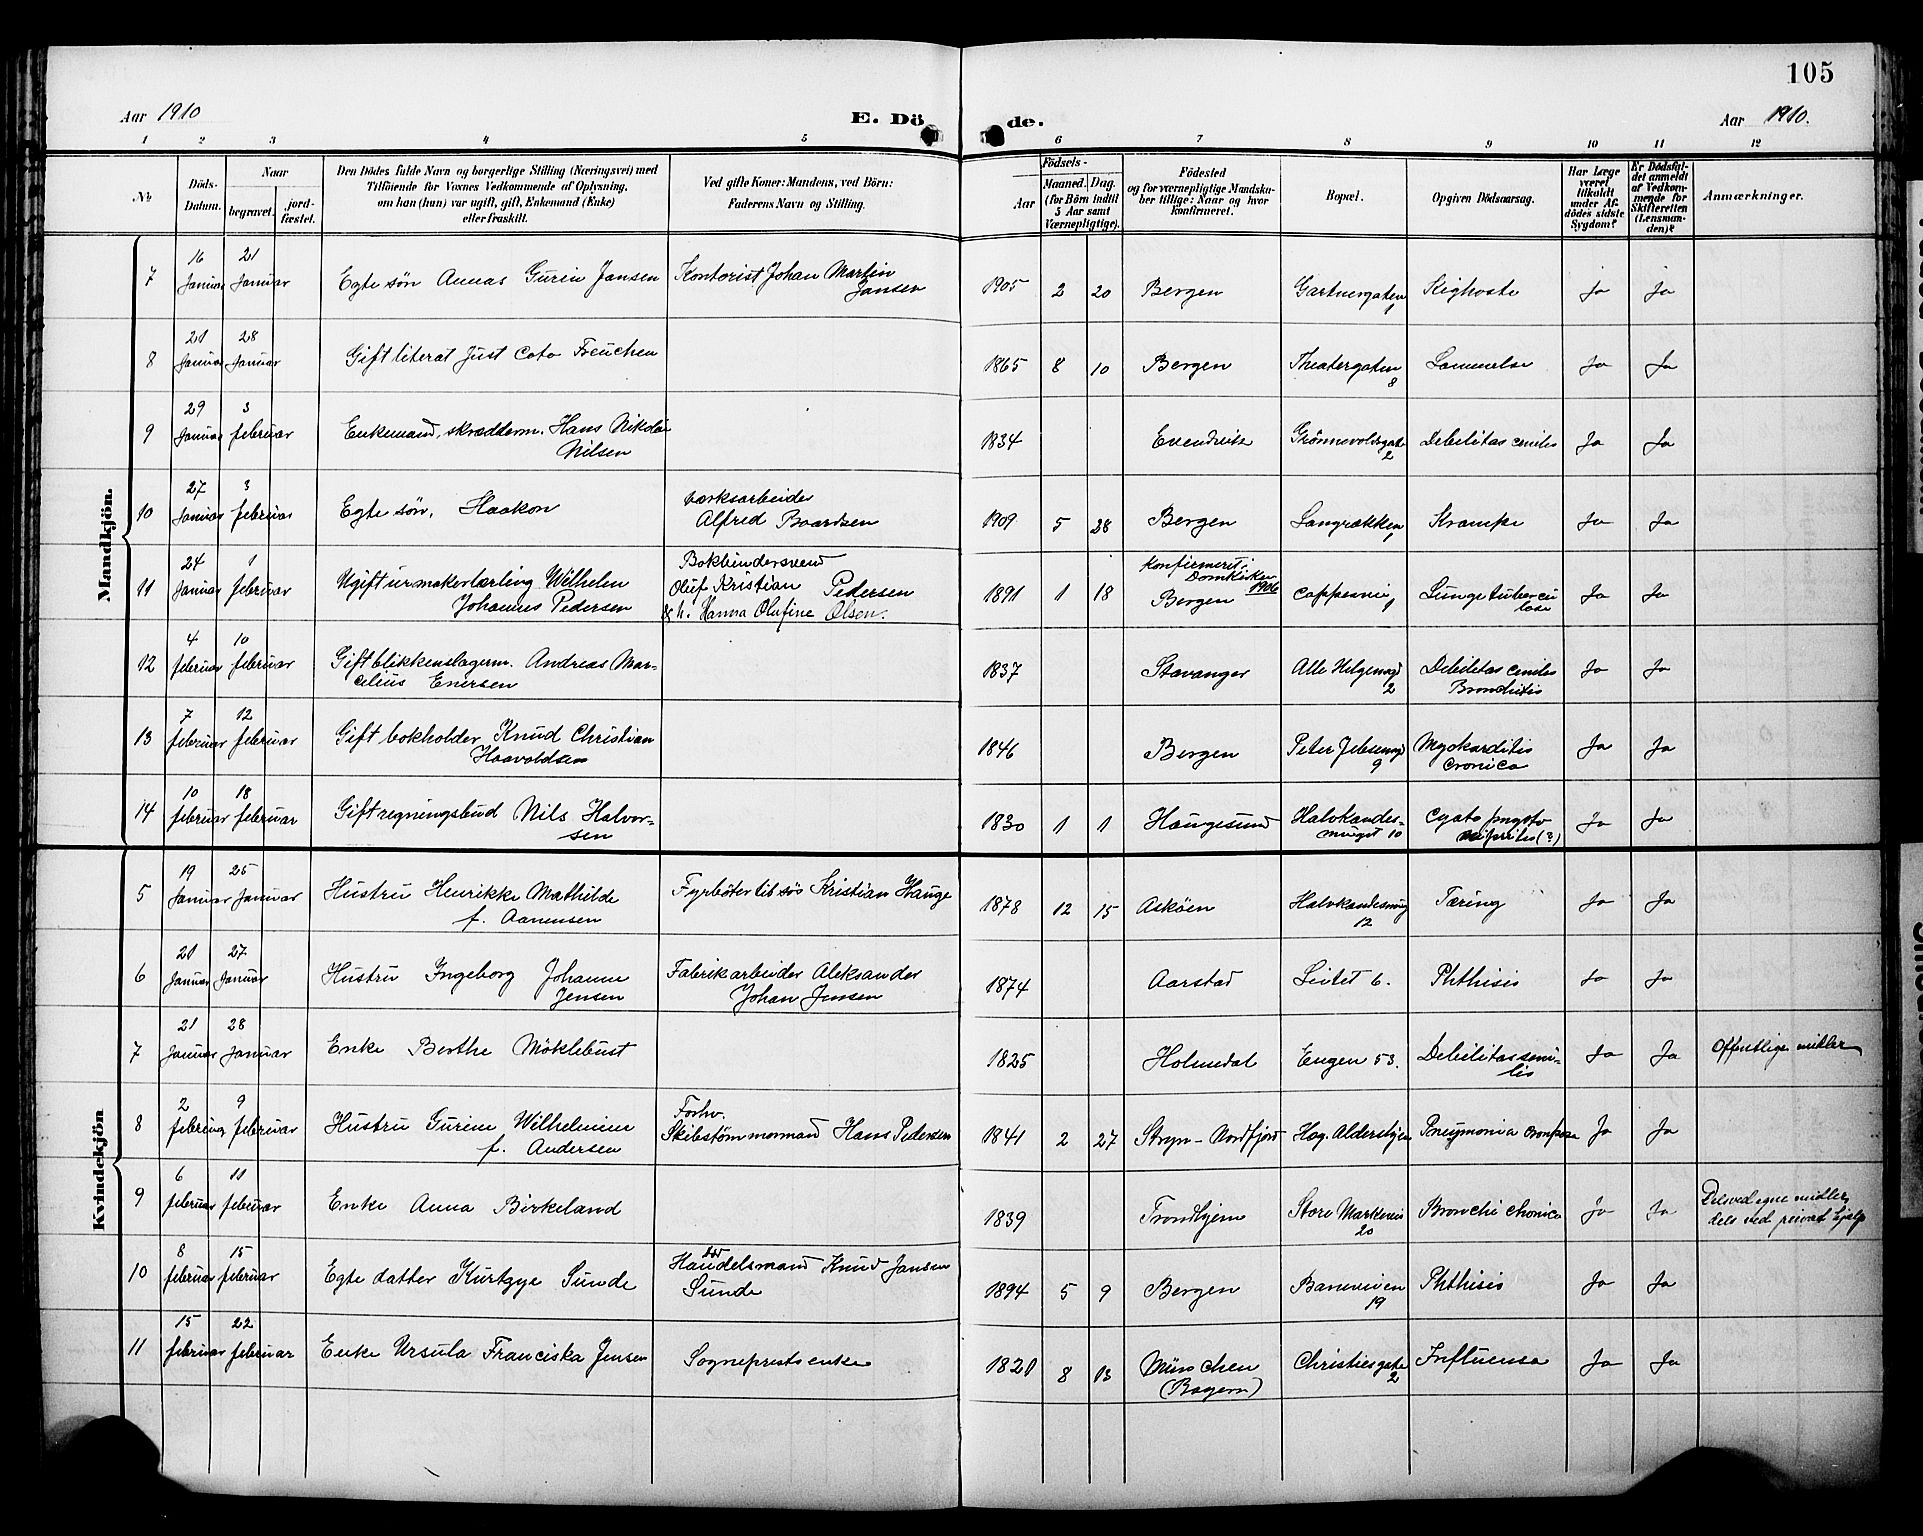 105
Aar 1910 E. Dö de. Aar 1910.
1 2 3 4 5 6 7 8 9 10 11 12
No Döds-Datum. Naar begravet. jord-fæstet. Den Dödes fulde Navn og borgerlige Stilling (Næringsvei) med Tilföiende for Voxnes Vedkommende af Oplysning, om han (hun) var ugift, gift, Enkemand (Enke) eller fraskilt. Ved gifte Koner: Mandens, ved Börn: Faderens Navn og Stilling. Födsels- Aar Maaned. Dag. (for Börn indtil 5 Aar samt Værnepligtige). Födested og for værnepligtige Mandskaber tillige: Naar og hvor konfirmeret. Bopæl. Opgiven Dödsaarsag. Har Læge været tilkaldt under Afdödes sidste Sygdom? Er Dödsfaldet anmeldt af Vedkommende for Skifteretten (Lensmanden)? Anmærkninger.
Mandkjön.
7 16 Januar 21 Januar Egte søn Annas Gurin Jansen Kontorist Johan Martin Jansen 1905 2 20 Bergen Gartnergaten 1 Kighoste Ja Ja
8 21 Januar 28 Januar Gift literat Just Cato Freuchen 1865 8 10 Bergen Theatergaten 8 Lammelse Ja Ja
9 29 Januar 3 februar Enkemand, skrædderm. Hans Nikolai Nilsen 1834 Evendvik Grønnevoldsgate 2 Debilitas cenilis Ja Ja
10 27 Januar 3 februar Egte søn, Haakon værksarbeider Alfred Baardsen 1909 5 28 Bergen Langrækken 1 Krampe Ja Ja
11 24 Januar 1 februar Ugift urmakerlærling Wilhelm Johannes Pedersen Bokbindersvend Oluf Kristian Pedersen & h. Hanna Olufine Olsen. 1891 1 18 konfirmert i Domkirken 1906 Bergen cappesmu 1 Lungetubercu lose Ja Ja
12 4 februar 10 februar Gift blikkenslagerm. Andreas Mar-celius Enersen 1837 Stavanger Alle Helgensgd 2 Debilitas cenilis Bronchitis Ja Ja
13 7 februar 12 februar Gift bokholder Knud Christian Haavoldsen 1846 Bergen Peter Jebsensgd 9 Myokarditis cronica Ja Ja
14 10 februar 18 februar Gift regningsbud Nils Halvor-sen 1830 1 1 Haugesund Halvkandes-muget 10 Ja Ja
Kvindekjön
5 19 Januar 25 Januar Hustru Henrikke Mathilde f. Aanensen Fyrbøter til søs Kristian Hauge 1878 12 15 Askøen Halvkandesmug 12 Tæring Ja Ja
6 21 Januar 27 Januar Hustru Ingeborg Johanne Jensen Fabrikarbeider Aleksander Johan Jensen 1874 Aarstad Leitet 6. Phthisis Ja Ja
7 21 Januar 28 Januar Enke Berthe Møklebust 1825 Holmedal Engen 53. Debilitas seni-lis Ja Ja Offentlige midler
8 2 februar 9 februar Hustru Gurine Wilhelmine f. Andersen Forhv. Skibstømmermand Hans Pedersen 1841 2 27 Stryn - Nordfjord Hag. Aldershjem Pneumonia croupøse Ja Ja
9 6 februar 11 februar Enke Anna Birkeland 1839 Trondhjem Store Markevei 20 Bronchi chronica Ja Ja Dels ved egne midler, dels ved privat hjælp
10 8 februar 15 februar Egte datter Kurtgye Sunde Handelsmand Knud Jansen Sunde 1894 5 9 Bergen Baneveien 19 Phthisis Ja Ja
11 15 februar 22 februar Enke Ursula Franciska Jensen Sogneprests enke 1821 8 13 München (Bayern) Christiesgate 2 Influensa Ja Ja